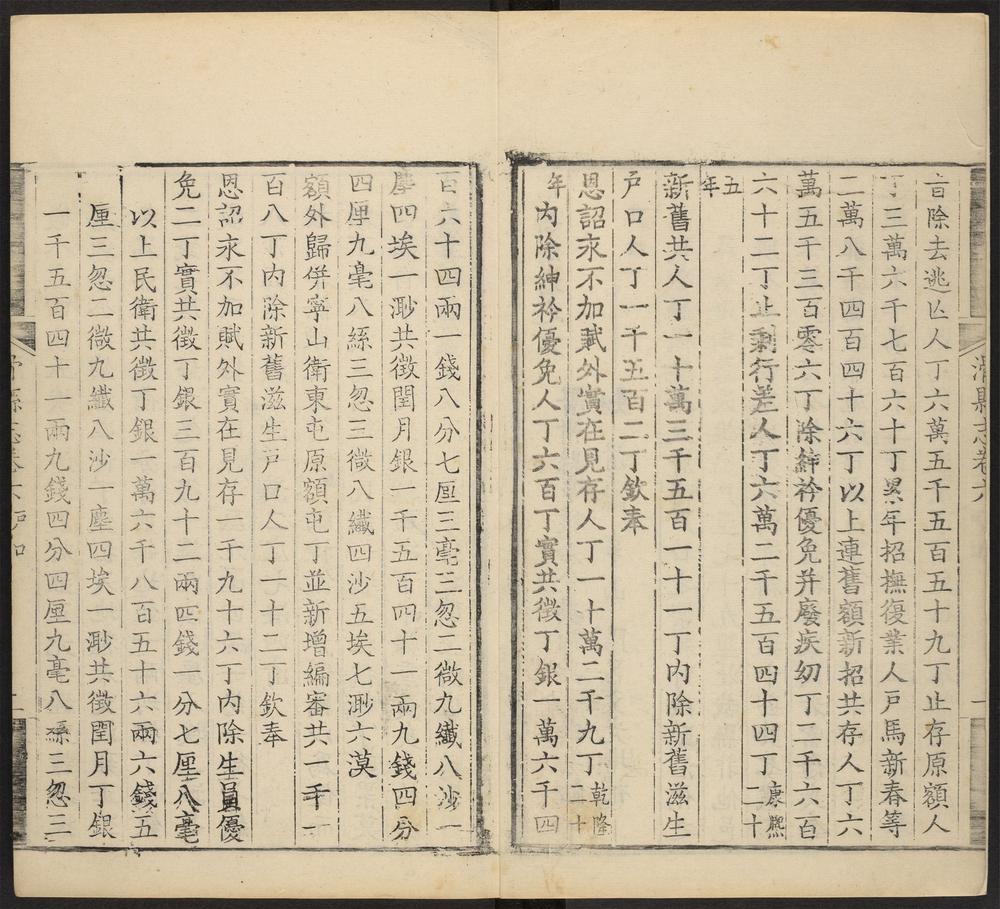 滑縣志卷六
一
音除去逃亾人丁六萬五千五百五十九丁止存原額人
丁三萬六千七百六十丁累年招撫復業人戸馬新春等
二萬八千四百四十六丁以上連舊額新招共存人丁六
萬五千三百零六丁除紳衿優免并廢疾幼丁二千六百
六十二丁止剩行差人丁六萬二千五百四十四丁康熙二十
五年
新舊共人丁一十萬三千五百一十一丁内除新舊滋生
戸口人丁一千五百二丁欽奉
恩詔永不加賦外實在見存人丁一十萬二千九丁乾隆二十
年内除紳衿優免人丁六百丁實共徵丁銀一萬六千四
百六十四兩一錢八分七厘三毫三忽二微九纖八沙一
塵四埃一渺共徵閏月銀一千五百四十一兩九錢四分
四厘九毫八絲三忽三微八纖四沙五埃七渺六漠
額外歸併寧山衛東屯原額屯丁並新增編審共一千一
百八丁内除新舊滋生戸口人丁一十二丁欽奉
恩詔永不加賦外實在見存一千九十六丁内除生員優
免二丁實共徵丁銀三百九十二兩四錢一分七厘八毫
以上民衛共徵丁銀一萬六千八百五十六兩六錢五
厘三忽二微九纖八沙一塵四埃一渺共徵閏月丁銀
一千五百四十一兩九錢四分四厘九毫八絲三忽三
滑縣志卷六 戸口
二